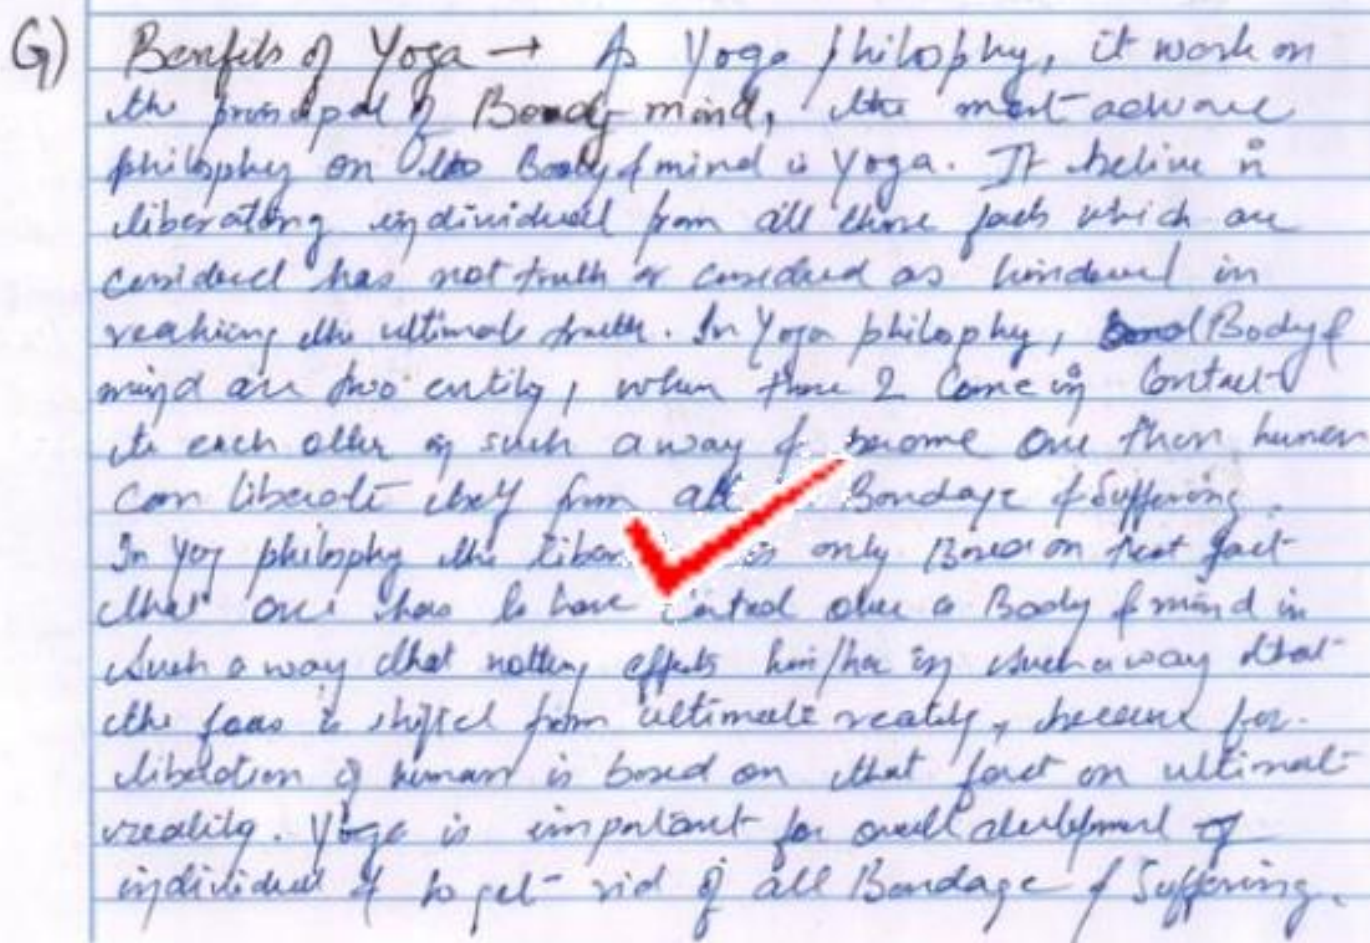 G) Benefits of Yoga → As Yoga philosphy, it work on
the principal of Body-mind, the most advance
philosphy on Body & mind is Yoga. It belive in
liberating individual from all those facts which are
considered has not truth or considered as hindered in
reaching the ultimate truth. In Yoga philosphy, Body &
mind are two entity, when these 2 come in Contact
to each other in such a way & become one then human
can liberate itself from all Bondage & Suffering.
In Yog philosphy the is only Based on that fact
that one has to have control over a Body & mind in
such a way that nothing effects him/her in such a way that
the focus is shifted from ultimate reality, because for
liberation of human is based on that fact on ultimate
reality. Yoga is important for overall development of
individual & to get rid of all Bondage & Suffering.